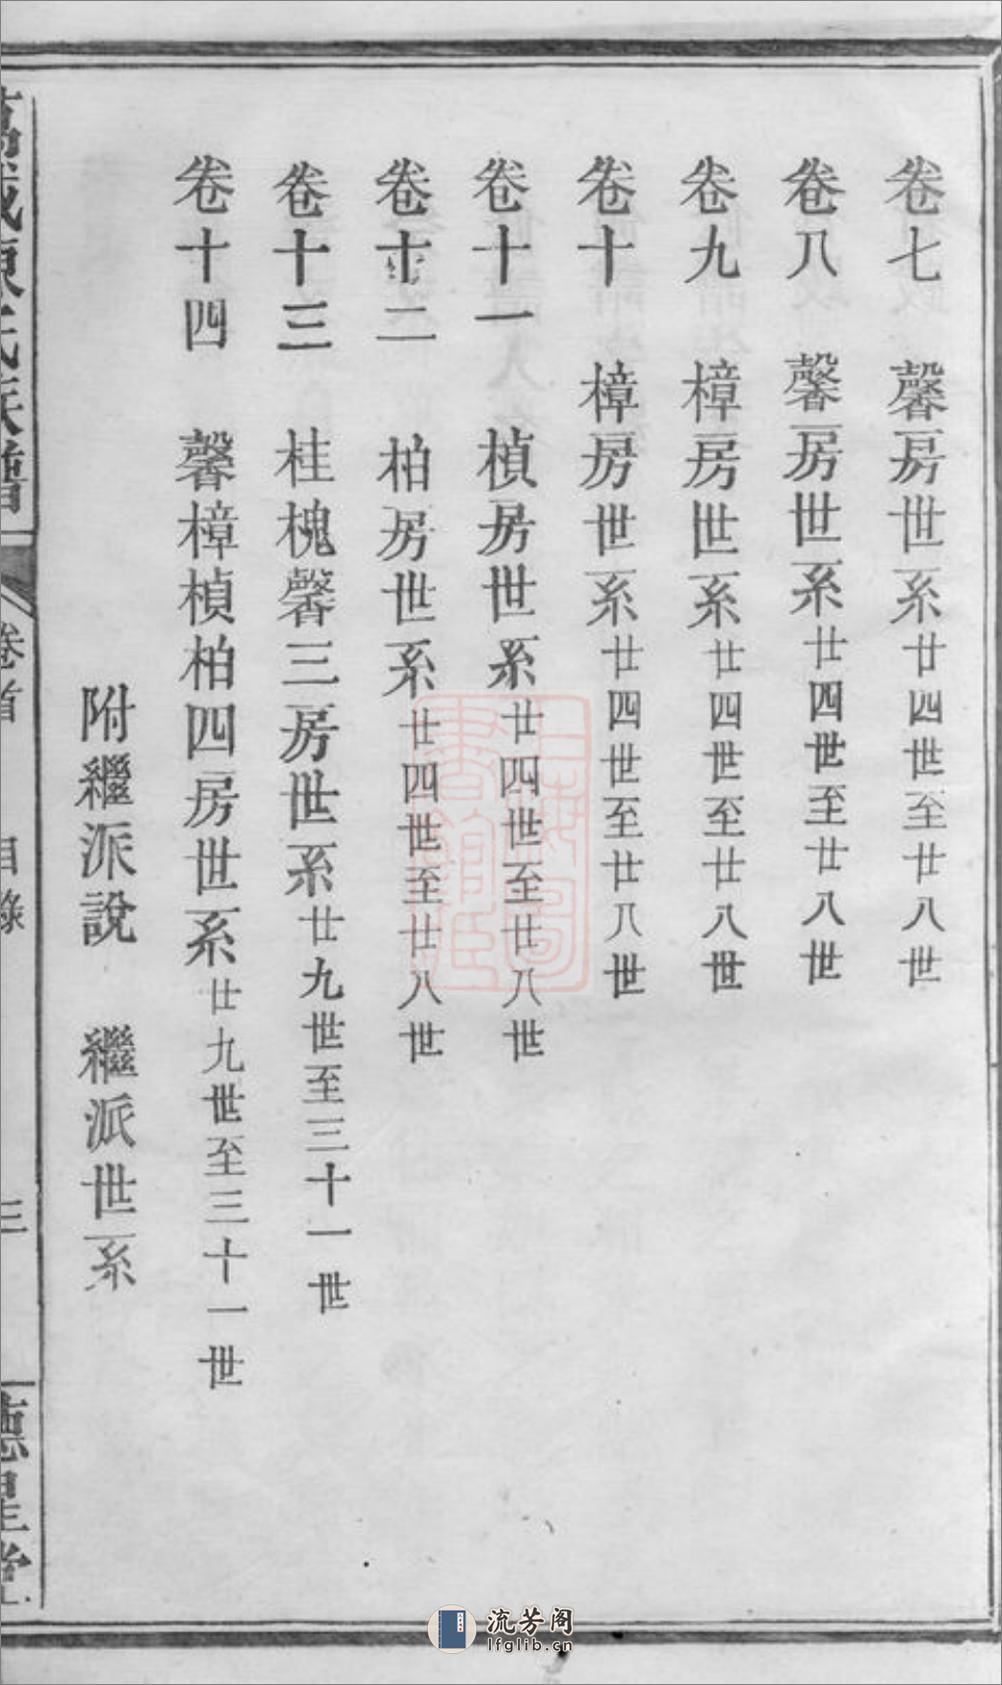 卷七　馨房世系廿四世至廿八世
卷八　馨房世系廿四世至廿八世
卷九　樟房世系廿四世至廿八世
卷十　樟房世系廿四世至廿八世
卷十一　楨房世系廿四世至廿八世
卷十二　柏房世系廿四世至廿八世
卷十三　桂槐馨三房世系廿九世至三十一世
卷十四　馨樟楨柏四房世系廿九世至三十一世
附繼派說　繼派世系
卷首　目錄　三
上海圖書館藏
流芳阁
lfglib.cn